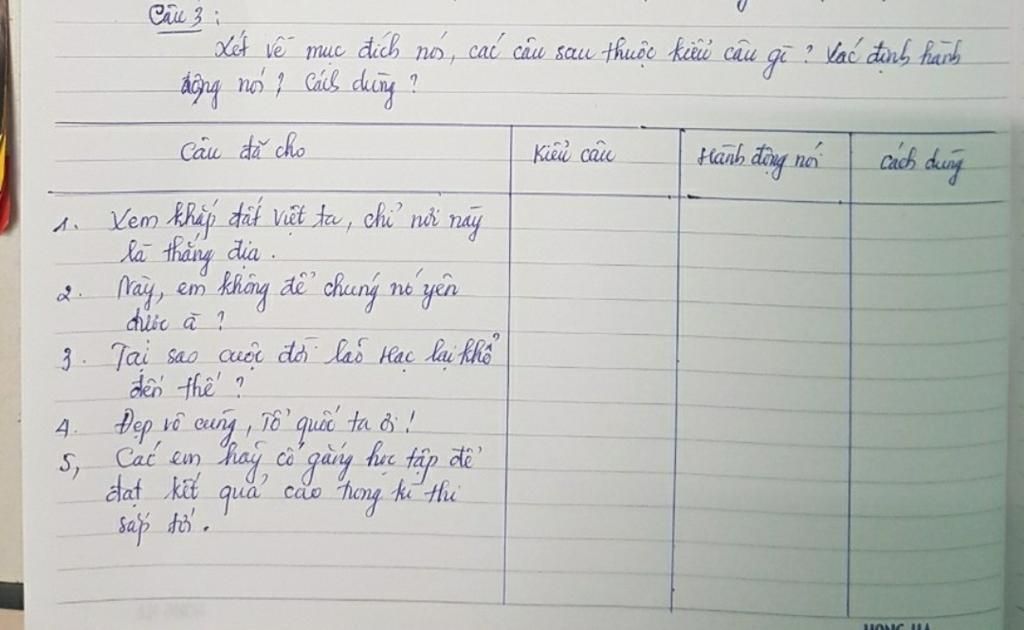 Câu 3 :
Xét về mục đích nói, các câu sau thuộc kiểu câu gì ? Xác định hành
động nói ? Cách dùng ?
Câu đã cho Kiểu câu Hành động nói Cách dùng
1. Xem khắp đất Việt ta, chỉ nơi này
là thắng địa .
2. Này, em không để chúng nó yên
được à ?
3. Tại sao cuộc đời lão Hạc lại khổ
đến thế ?
4. Đẹp vô cùng, Tổ quốc ta ơi !
5, Các em hãy cố gắng học tập để
đạt kết quả cao trong kì thi
sắp tới .